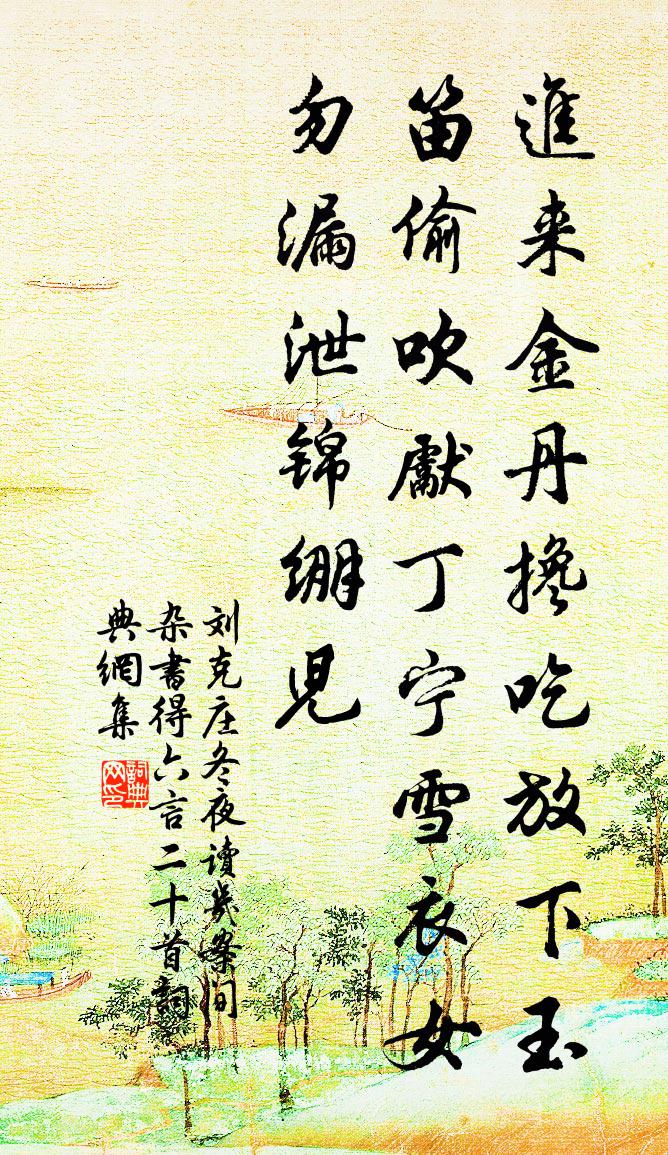 進来金丹搀吃放下玉
笛偷吹獻丁宁雪衣女
勿漏泄锦绷児
刘克庄冬夜讀幾案间
杂書得六言二十首詞
典網集
詞典
网印